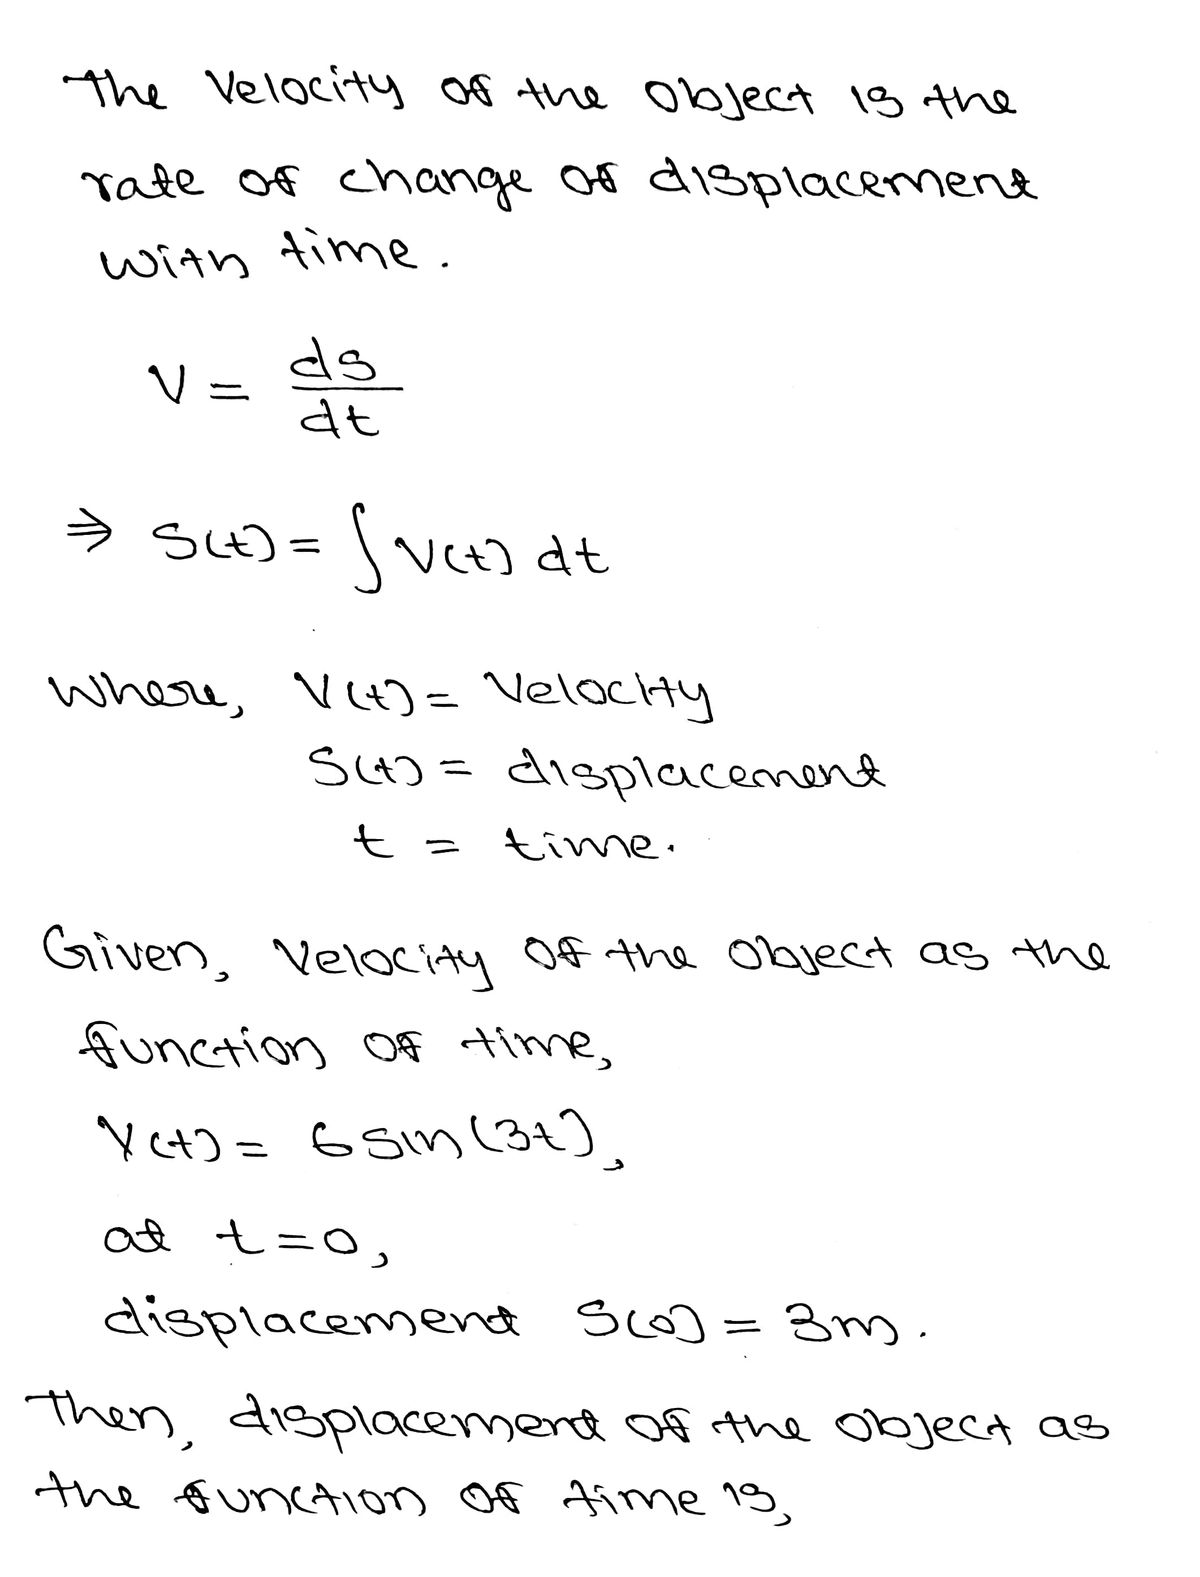 The Velocity of the object is the
rate of change of displacement
with time.
V = ds/dt
⇒ S(t) = ∫ V(t) dt
Where, V(t) = Velocity
S(t) = displacement
t = time.
Given, Velocity of the object as the
function of time,
V(t) = 6 sin(3t),
at t=0,
displacement S(0) = 3m.
Then, displacement of the object as
the function of time is,